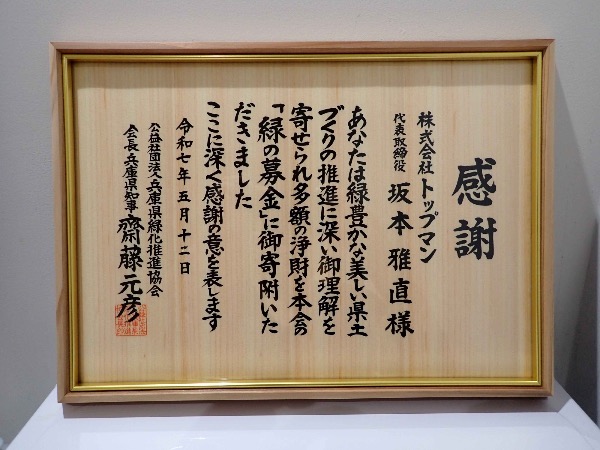 感謝
株式会社トップマン
代表取締役 坂本雅直様
あなたは緑豊かな美しい県土
づくりの推進に深い御理解を
寄せられ多額の浄財を本会の
「緑の募金」に御寄附いた
だきました
ここに深く感謝の意を表します
令和七年五月十二日
公益社団法人兵庫県緑化推進協会
会長兵庫県知事 齋藤元彦